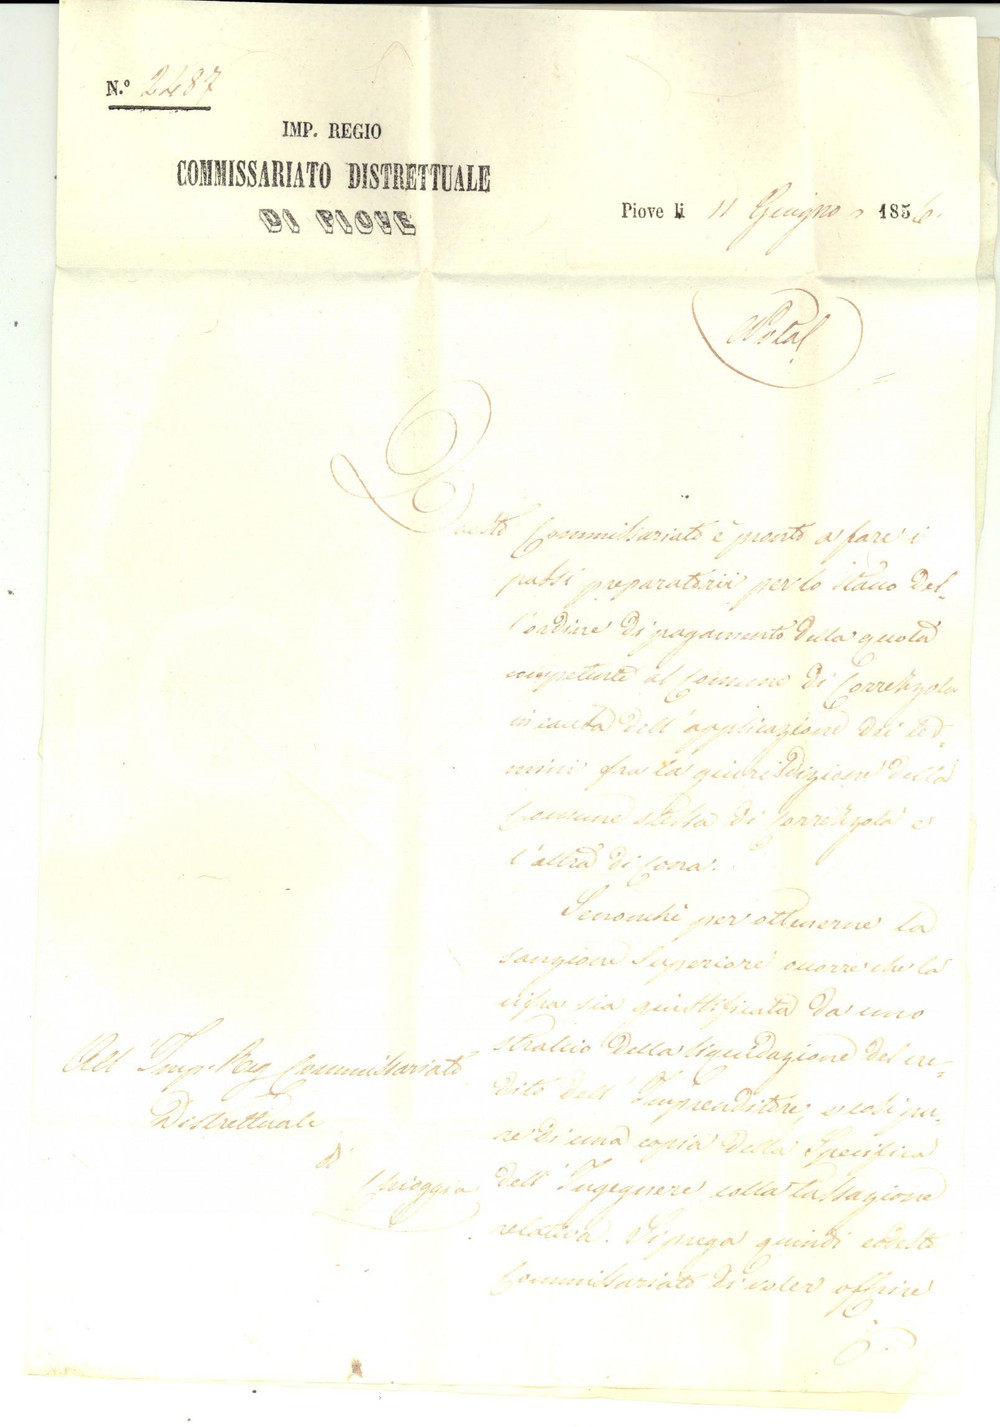 N.º 2487
IMP. REGIO
COMMISSARIATO DISTRETTUALE
DI PIOVE
Piove li 11 Giugno 1856.
Nota
Questo Commissariato è pronto a fare i
passi preparatorii per lo stacco del-
l'ordine di pagamento della quota
competente al Comune di Correzzola
in causa dell'applicazione dei ter-
mini fra la giurisdizione della
Comune stessa di Correzzola e
l'altra di Cona.
Senonchè per ottenerne la
sanzione Superiore occorre che la
cifra sia giustificata da uno
stralcio della liquidazione del cre-
dito dell'Imprenditore, e così pu-
re di una copia della Specifica
dell'Ingegnere colla tassazione
relativa. Si prega quindi codesto
Commissariato di voler offrire
All' Imp. Reg. Commissariato
Distrettuale
di
Chioggia